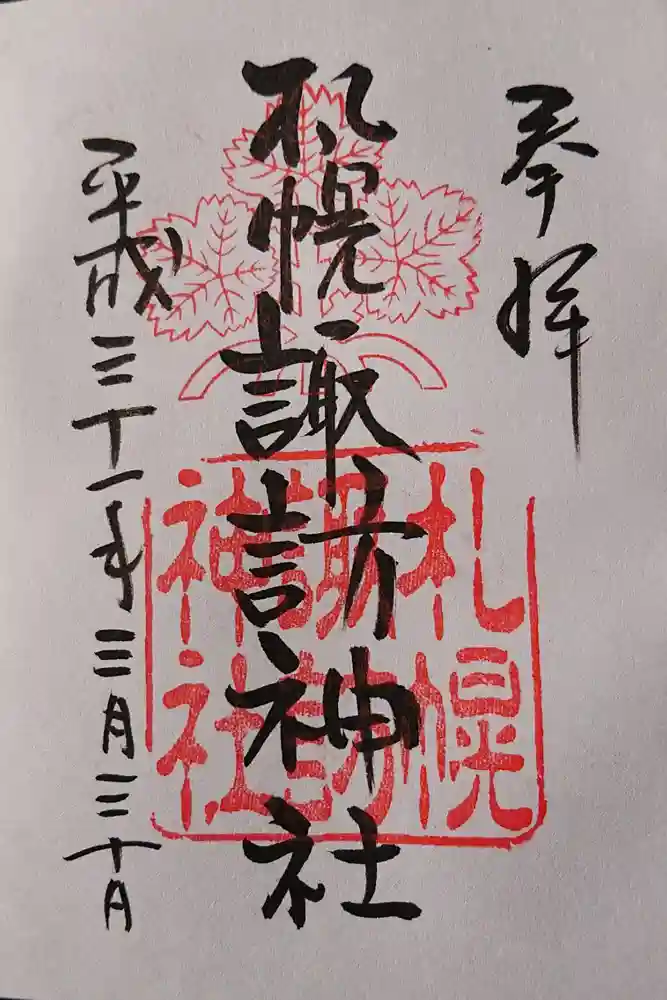 奉拝
札幌諏訪神社
平成三十一年三月三十日
札幌
諏訪
神社